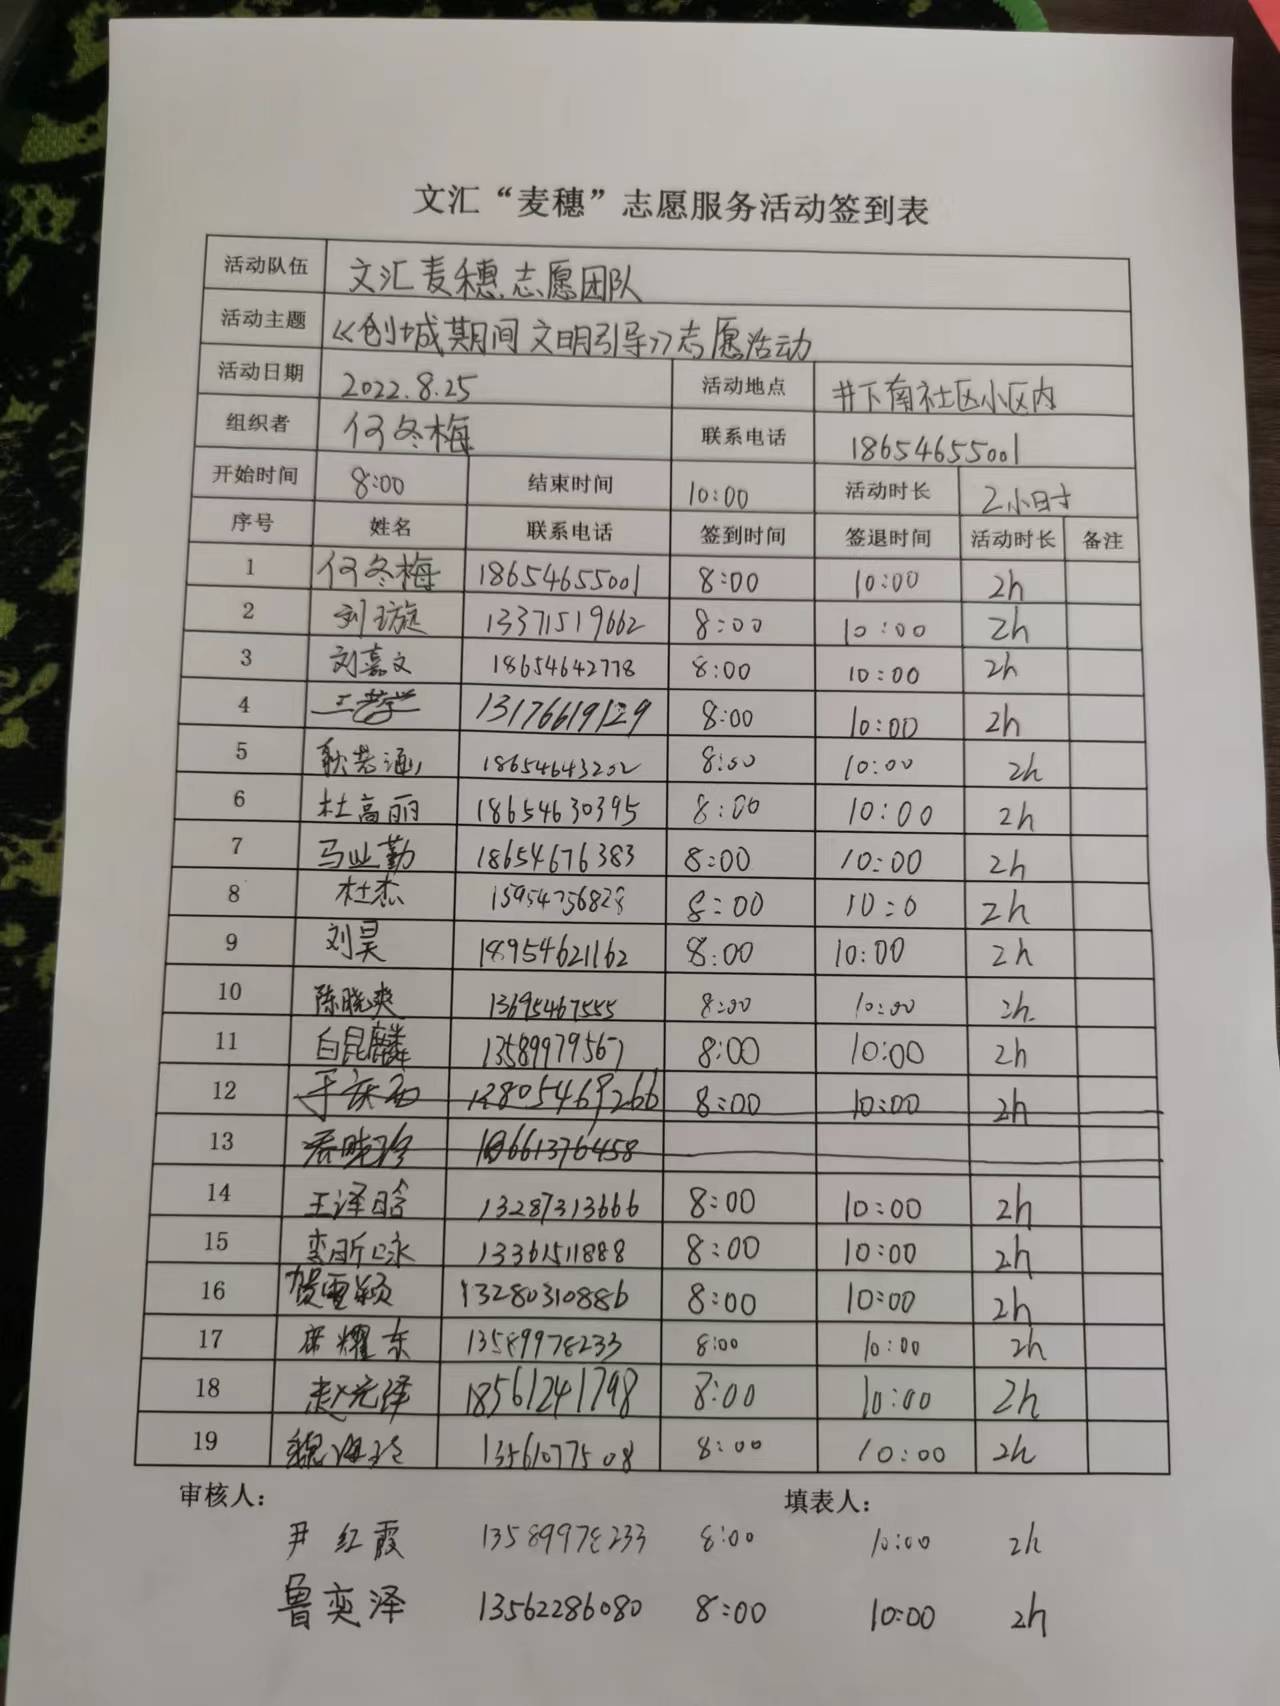 文汇“麦穗”志愿服务活动签到表
活动队伍 文汇麦穗志愿团队
活动主题 《创城期间文明引导》志愿活动
活动日期 2022.8.25 活动地点 井下南社区小区内
组织者 何冬梅 联系电话 18654655001
开始时间 8:00 结束时间 10:00 活动时长 2小时
序号 姓名 联系电话 签到时间 签退时间 活动时长 备注
1 何冬梅 18654655001 8:00 10:00 2h
2 刘璇 13371519662 8:00 10:00 2h
3 刘嘉文 18654642778 8:00 10:00 2h
4 13176619129 8:00 10:00 2h
5 耿若涵 18654643202 8:00 10:00 2h
6 杜高丽 18654630395 8:00 10:00 2h
7 马业勤 18654676383 8:00 10:00 2h
8 杜杰 15954756828 8:00 10:0 2h
9 刘昊 18954621162 8:00 10:00 2h
10 陈晓爽 13695467555 8:00 10:00 2h
11 白昆麟 13589979567 8:00 10:00 2h
12 13805469266 8:00 10:00 2h
13 18661376458
14 王泽晗 13287313666 8:00 10:00 2h
15 栾昕咏 13361511888 8:00 10:00 2h
16 贺雪颖 13280310886 8:00 10:00 2h
17 席耀东 13589978233 8:00 10:00 2h
18 赵元泽 18561241798 8:00 10:00 2h
19 魏海玲 13561077508 8:00 10:00 2h
审核人： 填表人：
尹红霞 13589978233 8:00 10:00 2h
鲁奕泽 13562286080 8:00 10:00 2h